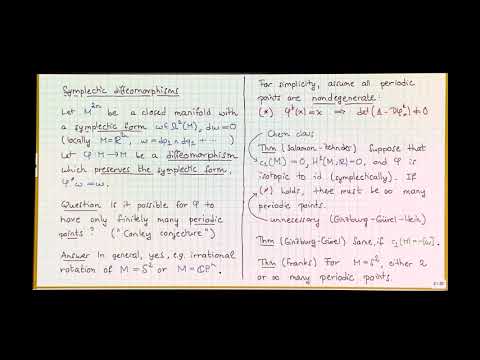 Symplectic diffeomorphisms
Let M²ⁿ be a closed manifold with
a symplectic form ω∈Ω²(M), dω=0
(locally M=ℝ²ⁿ, ω = dp₁∧dq₁ + ⋯ )
Let φ: M→M be a diffeomorphism
which preserves the symplectic form,
φ*ω=ω.
Question Is it possible for φ to
have only finitely many periodic
points? ("Conley conjecture")
Answer In general, yes, e.g. irrational
rotation of M=S² or M=ℂPⁿ.
For simplicity, assume all periodic
points are nondegenerate:
(*) φᵏ(x)=x ⟹ det(1-Dφₓᵏ)≠0
Chern class
Thm (Salamon-Zehnder) Suppose that
c₁(M)=0, H¹(M;ℝ)=0, and φ is
isotopic to id (symplectically). If
(*) holds, there must be ∞ many
periodic points.
unnecessary (Ginzburg-Gürel-Hein)
Thm (Ginzburg-Gürel) Same, if c₁(M)=-[ω].
Thm (Franks) For M=S², either 2
or ∞ many periodic points.